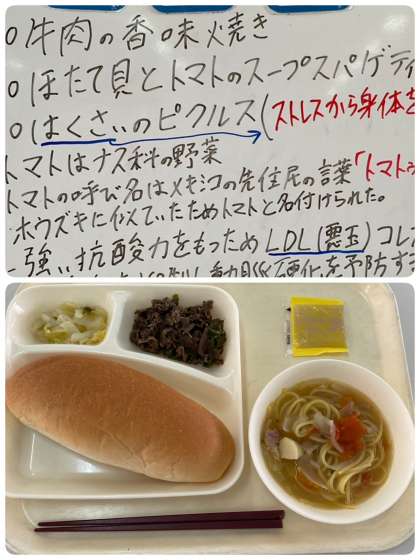 牛肉の香味焼き
ほたて貝とトマトのスープスパゲティ
はくさいのピクルス(ストレスから身体を
トマトはナス科の野菜
トマトの呼び名はメキシコの先住民の言葉「トマトゥ
ホウズキに似ていたためトマトと名付けられた。
強い抗酸力をもっためLDL(悪玉)コレ
を予防す